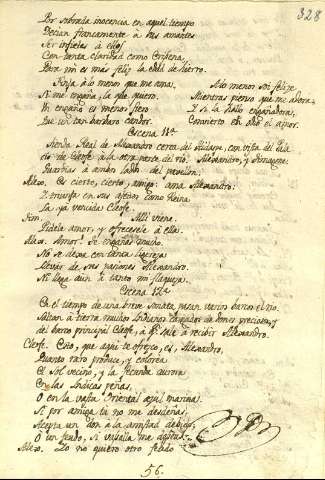 328
Por sobrada inocencia en aquel tiempo
Decian francamente à sus amantes
Ser infieles à ellos
Con tanta claridad como Erisena,
Para mi es mas feliz la edad de hierro.
Finja à lo menos que me ama, A lo menos soi felize
Si me engaña la que quiero. Mientras pienso que me adora,
Un engaño es menos fiero Y si la hallo engañadora,
Que un tan barbaro candor. Convierto en odio el amor.
Escena 11ª
Tienda Real de Alexandro cerca del Hidaspe con vista del Palacio de Cleofe à la otra parte del rio. Alexandro, y Timagene.
Guardias à ambos lados del pavellon.
Alex. Es cierto, cierto, amigo: ama Alexandro:
Y triunfa en sus afectos como Reina
La ya vencida Cleofe.
Tim. Allì viene.
Pidela amor, y ofrecesele à ella.
Alex. Amor! Te engañas mucho.
No se dexa con tanta ligereza
Llevar de sus pasiones Alexandro.
Ni llega aun à tanto mi flaqueza.
Escena 12ª
En el tiempo de una breve Sonata pasan varios barcos el rio.
Saltan à tierra muchos Indianos cargados de dones preciosos, y
del barco principal Cleofe, à qn sale à recibir Alexandro.
Cleofe. Esto, que aqui te ofrezco, es, Alexandro,
Quanto raro produce, y colorea
El Sol vecino, y la fecunda aurora
En las Indicas peñas,
O en la vasta Oriental azul marina.
Si por amiga tu no me desdeñas,
Acepta un don à la amistad debido;
O un feudo, si vasalla me
Alex. Yo no quiero otro feudo
56.